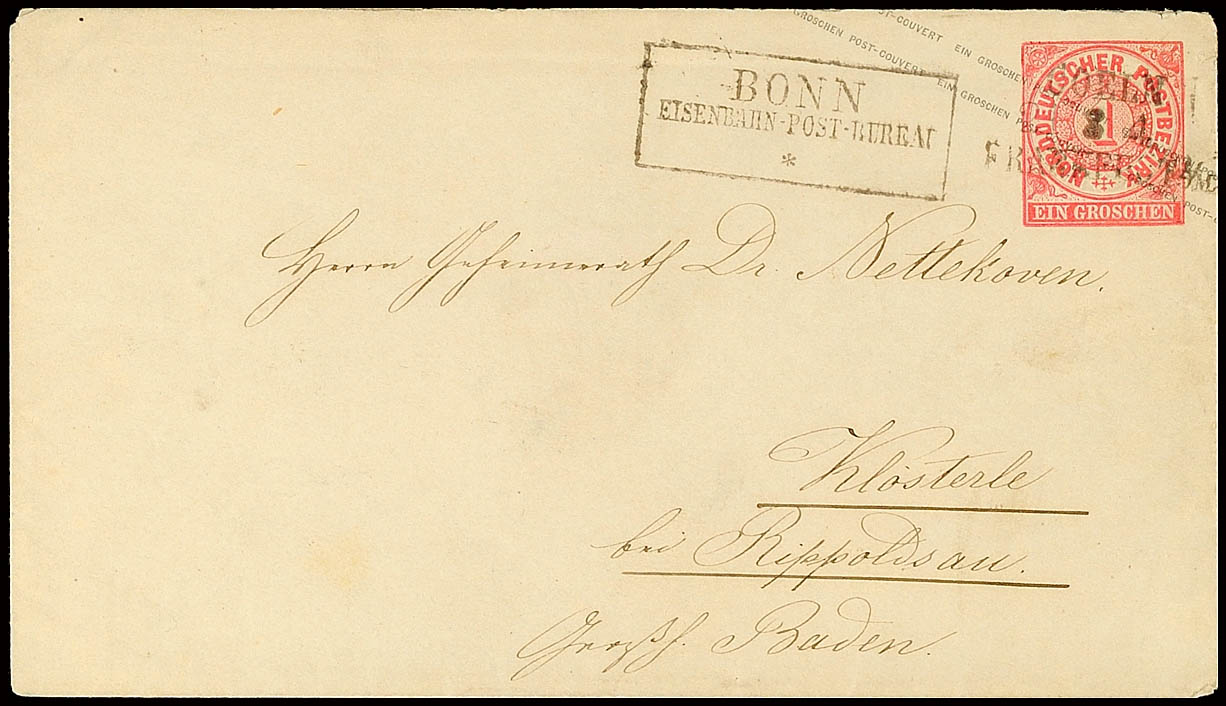 BONN
EISENBAHN-POST-BUREAU
*
NORDDEUTSCHER POSTBEZIRK
1
EIN GROSCHEN
EIN GROSCHEN POST-COUVERT
GROSCHEN POST-COUVERT EIN GROSCHEN POST
Herrn Geheimerath Dr. Nettekoven.
Klösterle
bei Rippoldsau.
Großh. Baden.